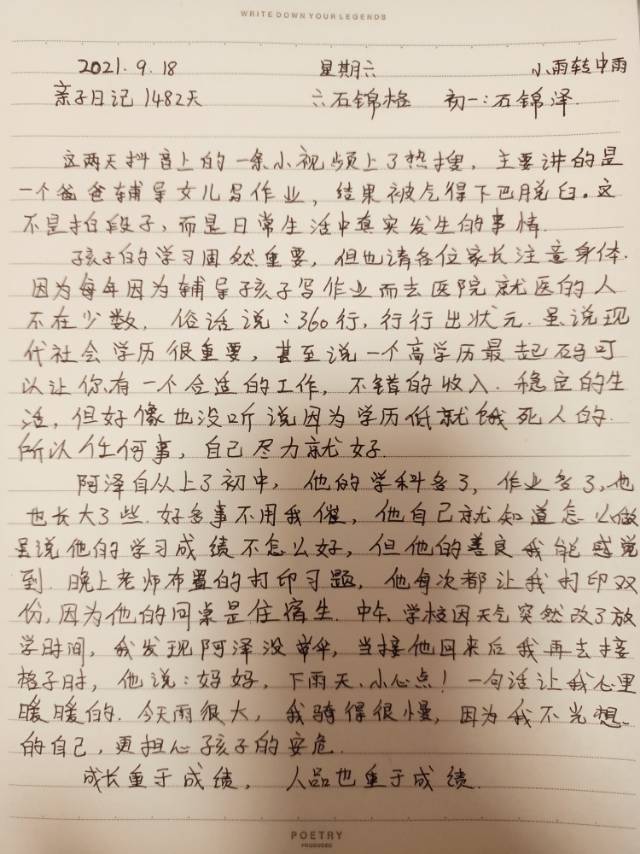 WRITE DOWN YOUR LEGENDS
2021.9.18 星期六 小雨转中雨
亲子日记1482天 六石锦格 初一:石锦泽.
这两天抖音上的一条小视频上了热搜,主要讲的是
一个爸爸辅导女儿写作业,结果被气得下巴脱臼。这
不是拍段子,而是日常生活中真实发生的事情.
孩子的学习固然重要,但也请各位家长注意身体.
因为每年因为辅导孩子写作业而去医院就医的人
不在少数,俗话说:360行,行行出状元.虽说现
代社会学历很重要,甚至说一个高学历最起码可
以让你有一个合适的工作,不错的收入.稳定的生
活,但好像也没听说因为学历低就饿死人的.
所以任何事,自己尽力就好.
阿泽自从上了初中,他的学科多了,作业多了,也
也长大了些.好多事不用我催,他自己就知道怎么做
虽说他的学习成绩不怎么好,但他的善良我能感觉
到.晚上老师布置的打印习题,他每次都让我打印双
份,因为他的同桌是住宿生.中午学校因天气突然改了放
学时间,我发现阿泽没带伞,当接他回来后我再去接
格子时,他说:妈妈,下雨天,小心点!一句话让我心里
暖暖的.今天雨很大,我骑得很慢,因为我不光想
的自己,更担心孩子的安危.
成长重于成绩,人品也重于成绩.
POETRY
PRODUCED